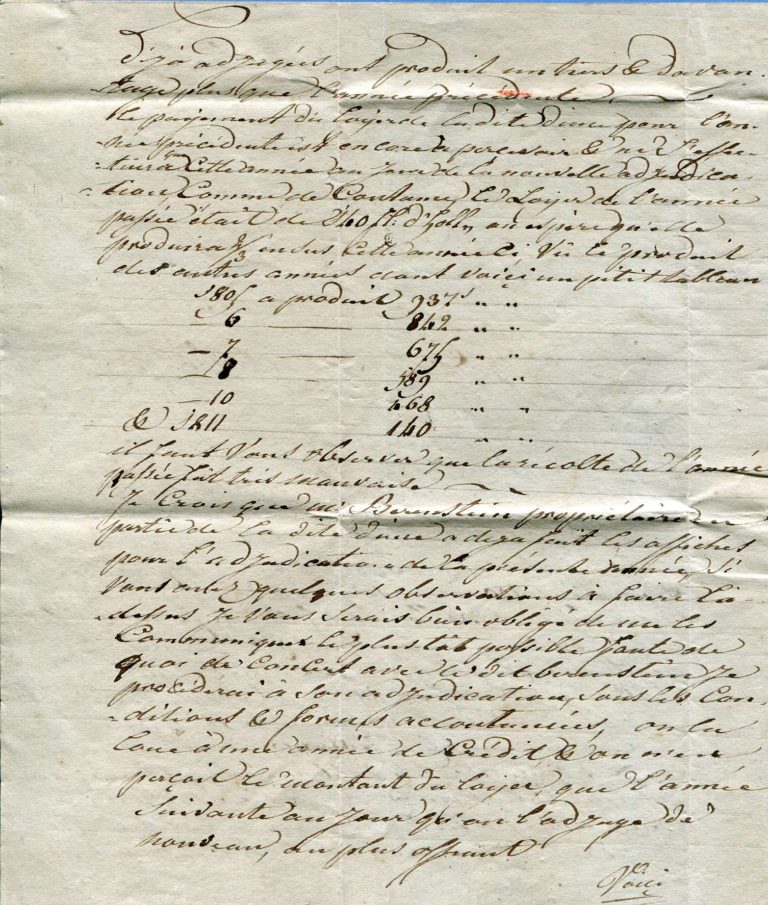 déja adjugées ont produit un tiers & davan-
-tage plus que l'année précédente,
le payement du loyer de la dite dune pour l'an-
née précédente est encore à percevoir & ne s'effec-
-tuera que cette année au jour de la nouvelle adjudica-
-tion Comme de Coutume, le Loyer de l'année
passée était de 140 fl. d'holl, on espère qu'elle
produira en sus cette année ci, Vu le produit
des autres années dont voici un petit tableau
1805 a produit 937 " "
— 6 —— 842 " "
— 7 —— 675 " "
— 8 589 " "
— 10 468 " "
& 1811 140 " "
il faut Vous observer que la récolte de l'année
passée fut très mauvaise —
Je Crois que Berenstein propriétaire en
partie de la dite dune a deja fait les affiches
pour l'adjudication de la présente année, Si
Vous avez quelques observations à faire là
-dessus Je Vous serais bien obligé de me les
Communiquer le plus tôt possible faute de
quoi de Concert avec le dit berenstein Je
procéderai à son adjudication, sous les Con-
-ditions & formes accoutumées, on la
loue à une année de Crédit & on n'en
perçoit le montant du loyer, que l'année
Suivante au jour qu'on l'adjuge de
nouveau, au plus offrant.